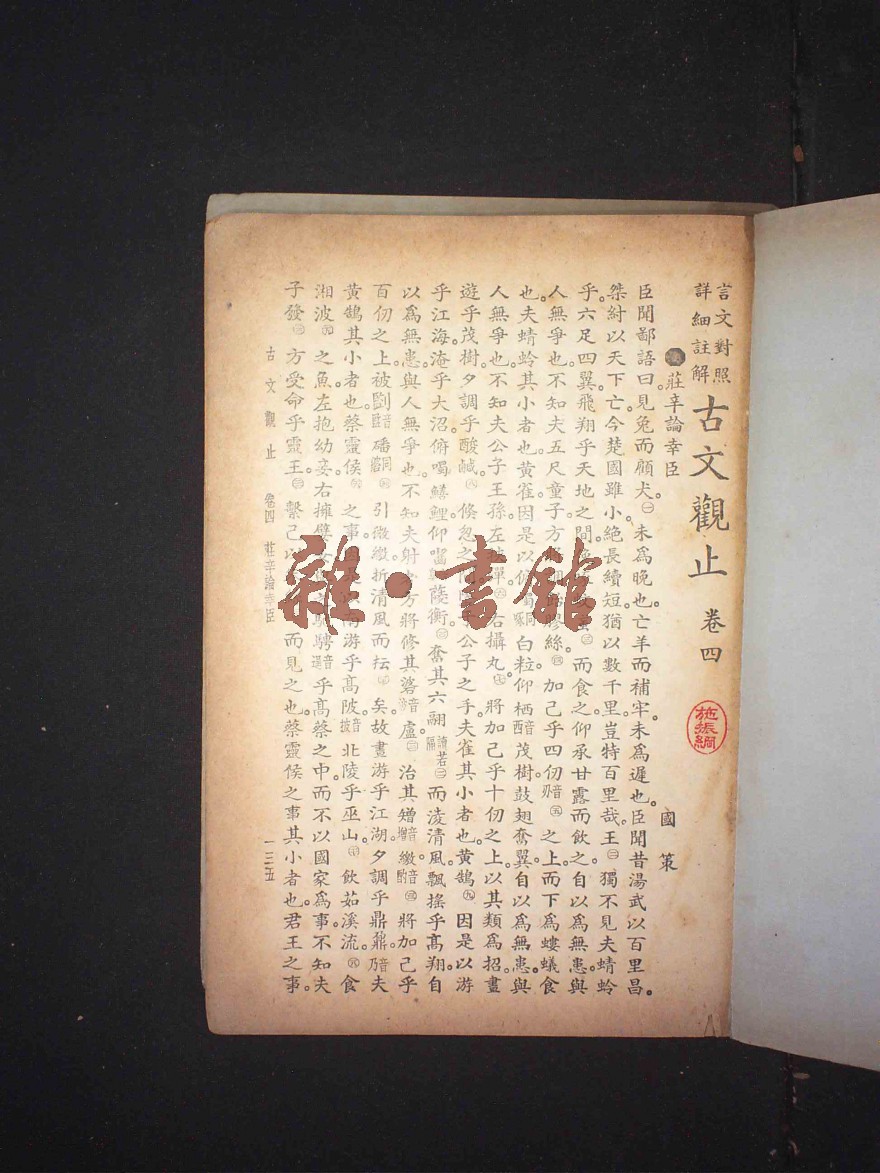 言文對照
詳細註解
古文觀止 卷四
施振綱
莊辛論幸臣
國策
臣聞鄙語曰。見兔而顧犬。㊀未爲晚也。亡羊而補牢。未爲遲也。臣聞昔湯武以百里昌。
桀紂以天下亡。今楚國雖小。絕長續短。猶以數千里。豈特百里哉。王㊁獨不見夫蜻蛉
乎。六足四翼。飛翔乎天地之間。㊂而食之。仰承甘露而飲之。自以爲無患。與
人無爭也。不知夫五尺童子。方絲。㊃加己乎四仞音刃㊄之上。而下爲螻蟻食
也。夫蜻蛉其小者也。黃雀因是以白粒。仰栖音西茂樹。鼓翅奮翼。自以爲無患。與
人無爭也。不知夫公子王孫。左彈。㊅右攝丸。㊆將加己乎十仞之上。以其類爲招。晝
遊乎茂樹。夕調乎酸鹹。㊇倏忽之公子之手。夫雀其小者也。黃鵠㊈因是以游
乎江海。淹乎大沼。俯噣鱔鯉。仰衡。奮其六翮。讀若隔而淩清風。飄搖乎高翔。自
以爲無患。與人無爭也。不知夫射方將修其盧。治其矰音增繳音酌將加己乎
百仞之上。被引微繳。折清風而抎矣。故晝游乎江湖。夕調乎鼎鼐。音乃夫
黃鵠其小者也。蔡靈侯之事。游乎高陂。音披北陵乎巫山。飲茹溪流。食
湘波之魚。左抱幼妾。右擁騁乎高蔡之中。而不以國家爲事。不知夫
子發。方受命乎靈王。繫己以而見之也。蔡靈侯之事。其小者也。君王之事。
古文觀止 卷四 莊辛論幸臣 一三五
雜·書館